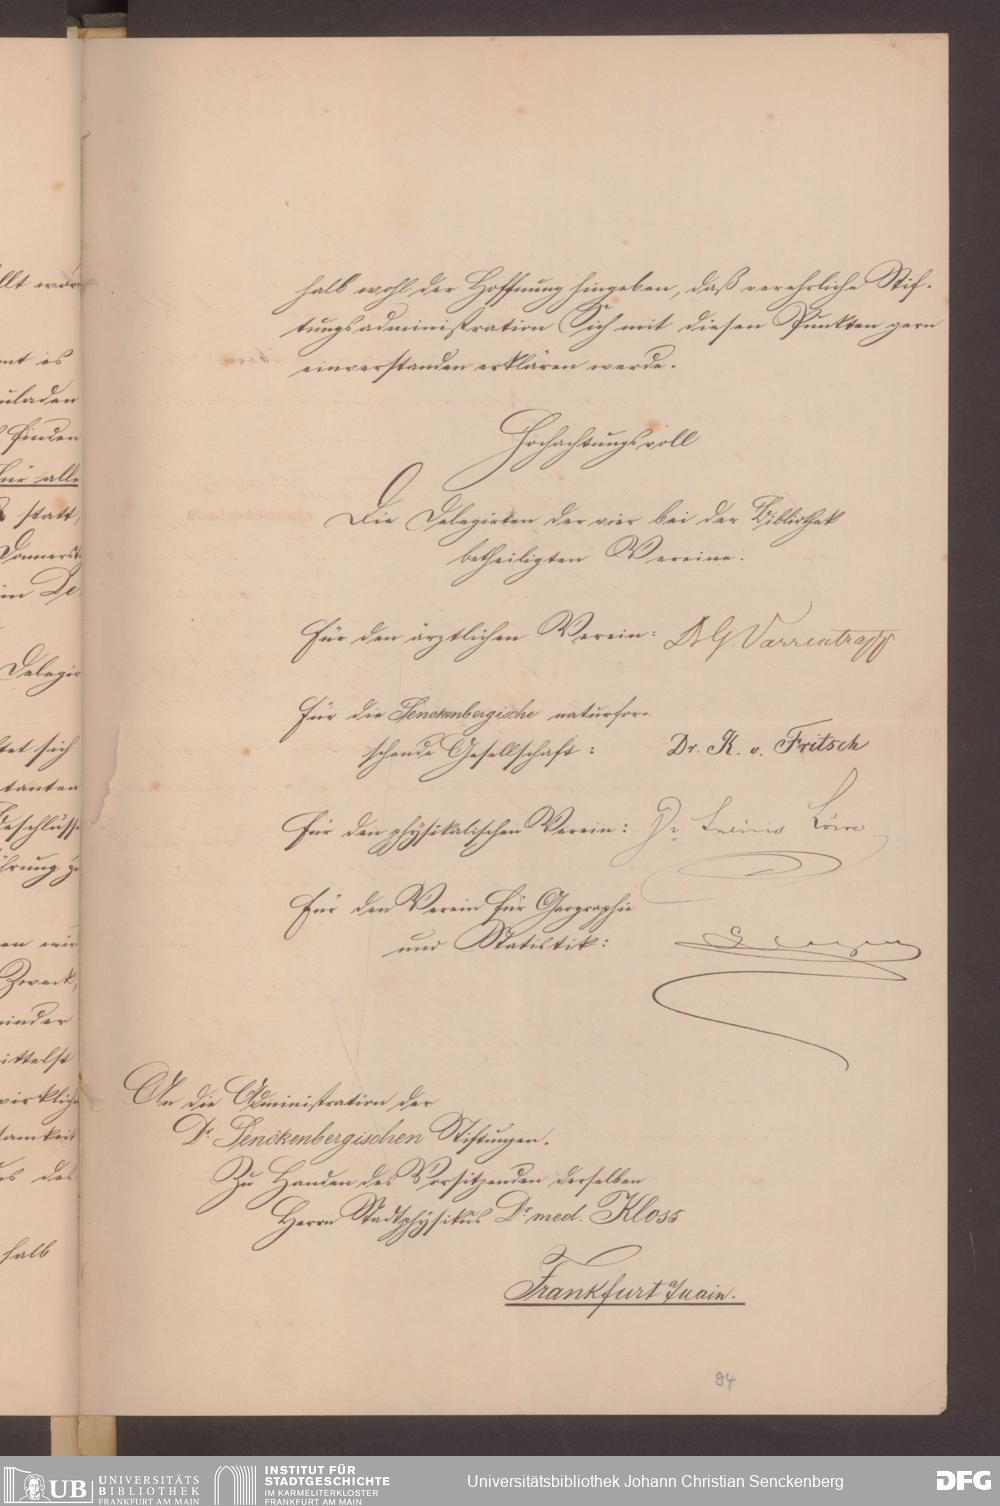 halb wohl der Hoffnung hingeben, daß verehrliche Stif-
tungsadministration Sich mit diesen Punkten gern
einverstanden erklären werde.
Hochachtungsvoll
Die Delegirten der vier bei der Bibliothek
betheiligten Vereine.
Für den ärztlichen Verein: Dr G. Varrentrapp
Für die Senckenbergische naturfor-
schende Gesellschaft: Dr. K. v. Fritsch
Für den physikalischen Verein: Dr
Für den Verein für Geographie
und Statistik:
An die Administration der
Dr. Senckenbergischen Stiftungen.
Zu Handen des Vorsitzenden derselben
Herrn Stadtphysikus Dr med. Kloss
Frankfurt a/main.
94
llt
es
uladen
finden
alle
statt,
Donners
im De
Delegir
sich
tanten
Beschlüss
hrung
wir
Zweck,
inder
ittelst
wirklich
samkeit
des
halb
UB UNIVERSITÄTS
BIBLIOTHEK
FRANKFURT AM MAIN
INSTITUT FÜR
STADTGESCHICHTE
IM KARMELITERKLOSTER
FRANKFURT AM MAIN
Universitätsbibliothek Johann Christian Senckenberg
DFG